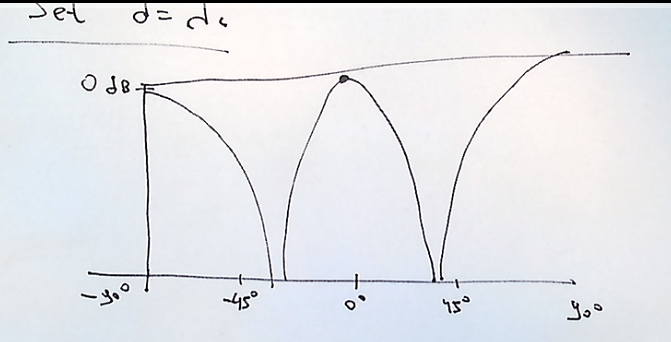 Set d=
0 dB
-90° -45° 0° 45° 90°